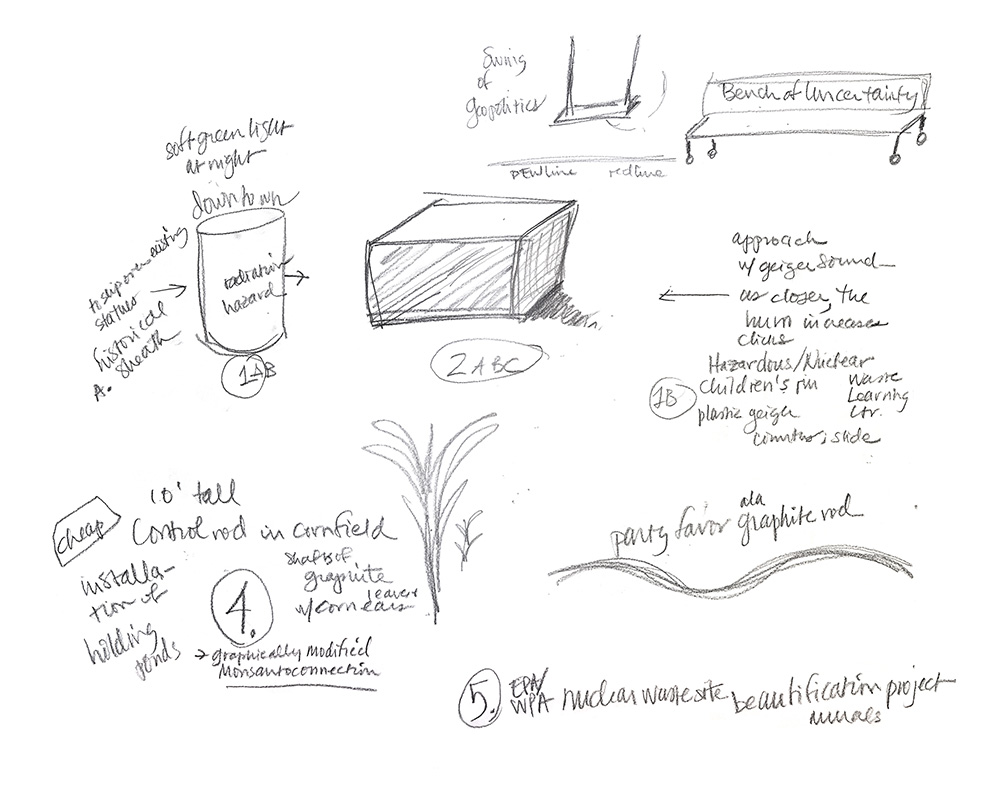 Swing
of
Geopolitics
Bench of Uncertainty
redline
soft green light
at night
downtown
radiation
hazard
existing
statue
historical
A. sheath
1AB
2 ABC
approach
w/ geiger sound
as closer, the
hum increases
clicks
Hazardous/Nuclear
1B
children's
waste
plastic geiger
Learning
Ctr.
counter; slide
10' tall
cheap
Control rod in cornfield
installa-
tion of
holding
ponds
4.
shafts of
graphite
leaves
w/ corn ears
→ graphically modified
Monsanto connection
party favor ala graphite rod
5.
EPA/
WPA nuclear waste site beautification project
murals